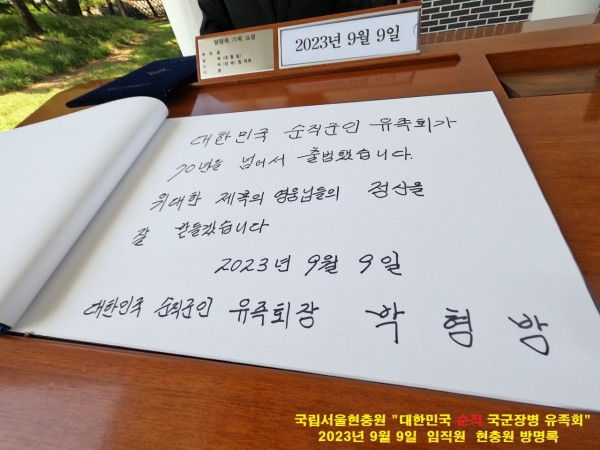 방명록 기록 요령
2023년 9월 9일
대한민국 순직군인 유족회가
70년을 넘어서 출범했습니다.
위대한 제복의 영웅님들의 정신을
잘 받들겠습니다
2023년 9월 9일
대한민국 순직군인 유족회장 박 형 방
국립서울현충원 "대한민국 순직 국군장병 유족회"
2023년 9월 9일 임직원 현충원 방명록